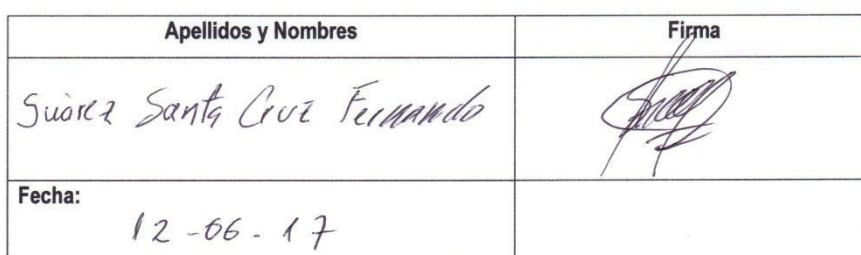 Apellidos y Nombres Firma
Suárez Santa Cruz Fernando
Fecha:
12-06-17